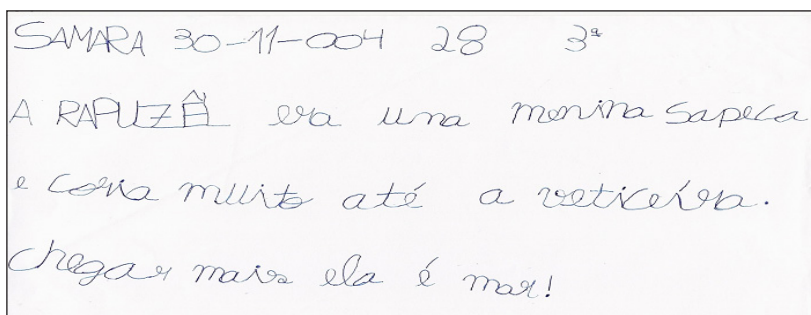 SAMARA 30-11-004 28 3ª
A RAPUZÊL era uma menina sapeca
e coria muito até a veticeíra.
chegar mais ela é mar!